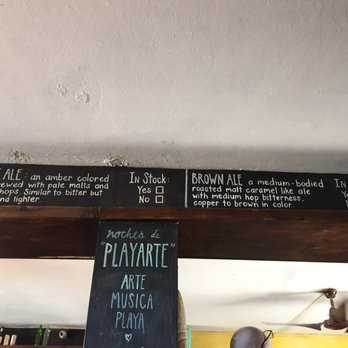 ALE: an amber colored
ewed with pale malts and
hops Similar to bitter but
nd lighter.
In Stock:
Yes
No
BROWN ALE a medium-bodied
roasted malt caramel like ale
with medium hop bitterness.
copper to brown in color.
In
noches de
"PLAYARTE"
ARTE
MUSICA
PLAYA